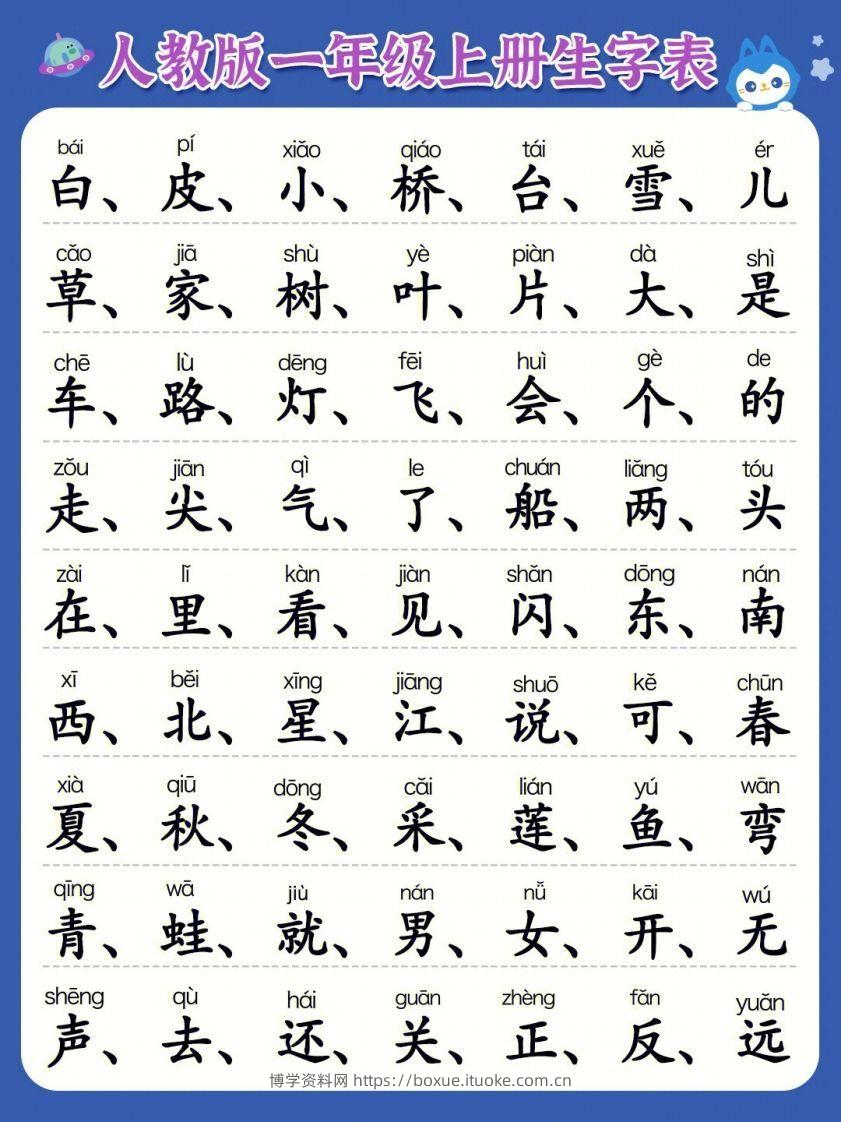 人教版一年级上册生字表
bái pí xiǎo qiáo tái xuě ér
白、皮、小、桥、台、雪、儿
cǎo jiā shù yè piàn dà shì
草、家、树、叶、片、大、是
chē lù dēng fēi huì gè de
车、路、灯、飞、会、个、的
zǒu jiān qì le chuán liǎng tóu
走、尖、气、了、船、两、头
zài lǐ kàn jiàn shǎn dōng nán
在、里、看、见、闪、东、南
xī běi xīng jiāng shuō kě chūn
西、北、星、江、说、可、春
xià qiū dōng cǎi lián yú wān
夏、秋、冬、采、莲、鱼、弯
qīng wā jiù nán nǚ kāi wú
青、蛙、就、男、女、开、无
shēng qù hái guān zhèng fǎn yuǎn
声、去、还、关、正、反、远
博学资料网 https://boxue.ituoke.com.cn